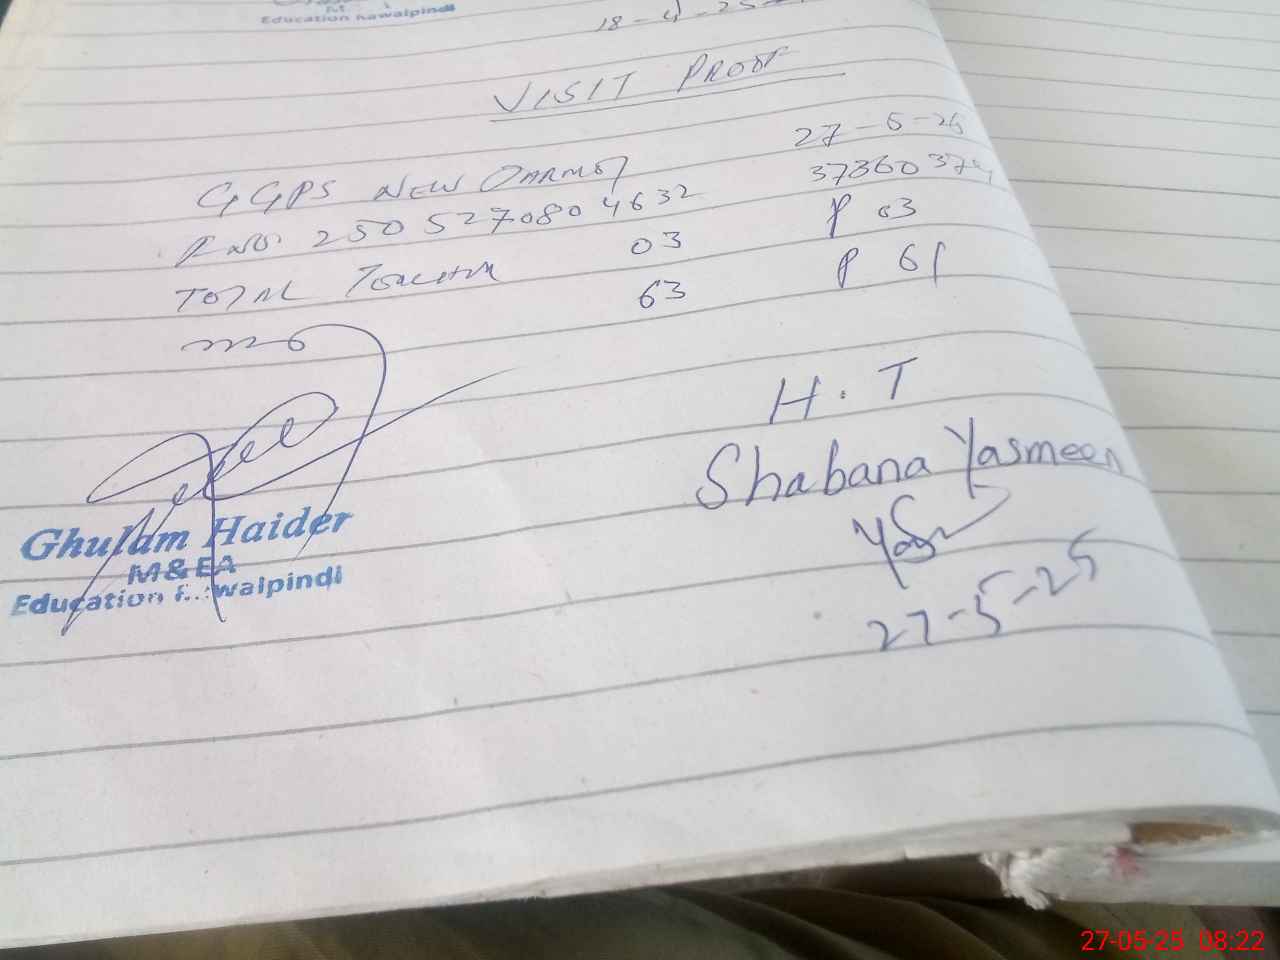 Education Rawalpindi
18-4-25
VISIT PROOF
27-5-25
GGPS NEW 37360374
E NO. 250527080 4632 P 03
TOTAL Teacher 03 P 61
63
H.T
Shabana Yasmeen
27-5-25
Ghulam Haider
M&EA
Education Rawalpindi
27-05-25 08:22